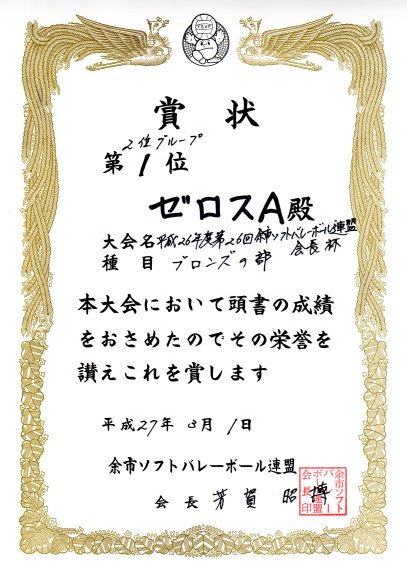 賞状
2位グループ
第1位
ゼロスA殿
大会名 平成26年度第26回余市ソフトバレーボール連盟
会長杯
種目 ブロンズの部
本大会において頭書の成績
をおさめたのでその栄誉を
讃えこれを賞します
平成27年3月1日
余市ソフトバレーボール連盟
会長 芳賀 昭博
余市ソフト
バレー
ボール連盟
会長印